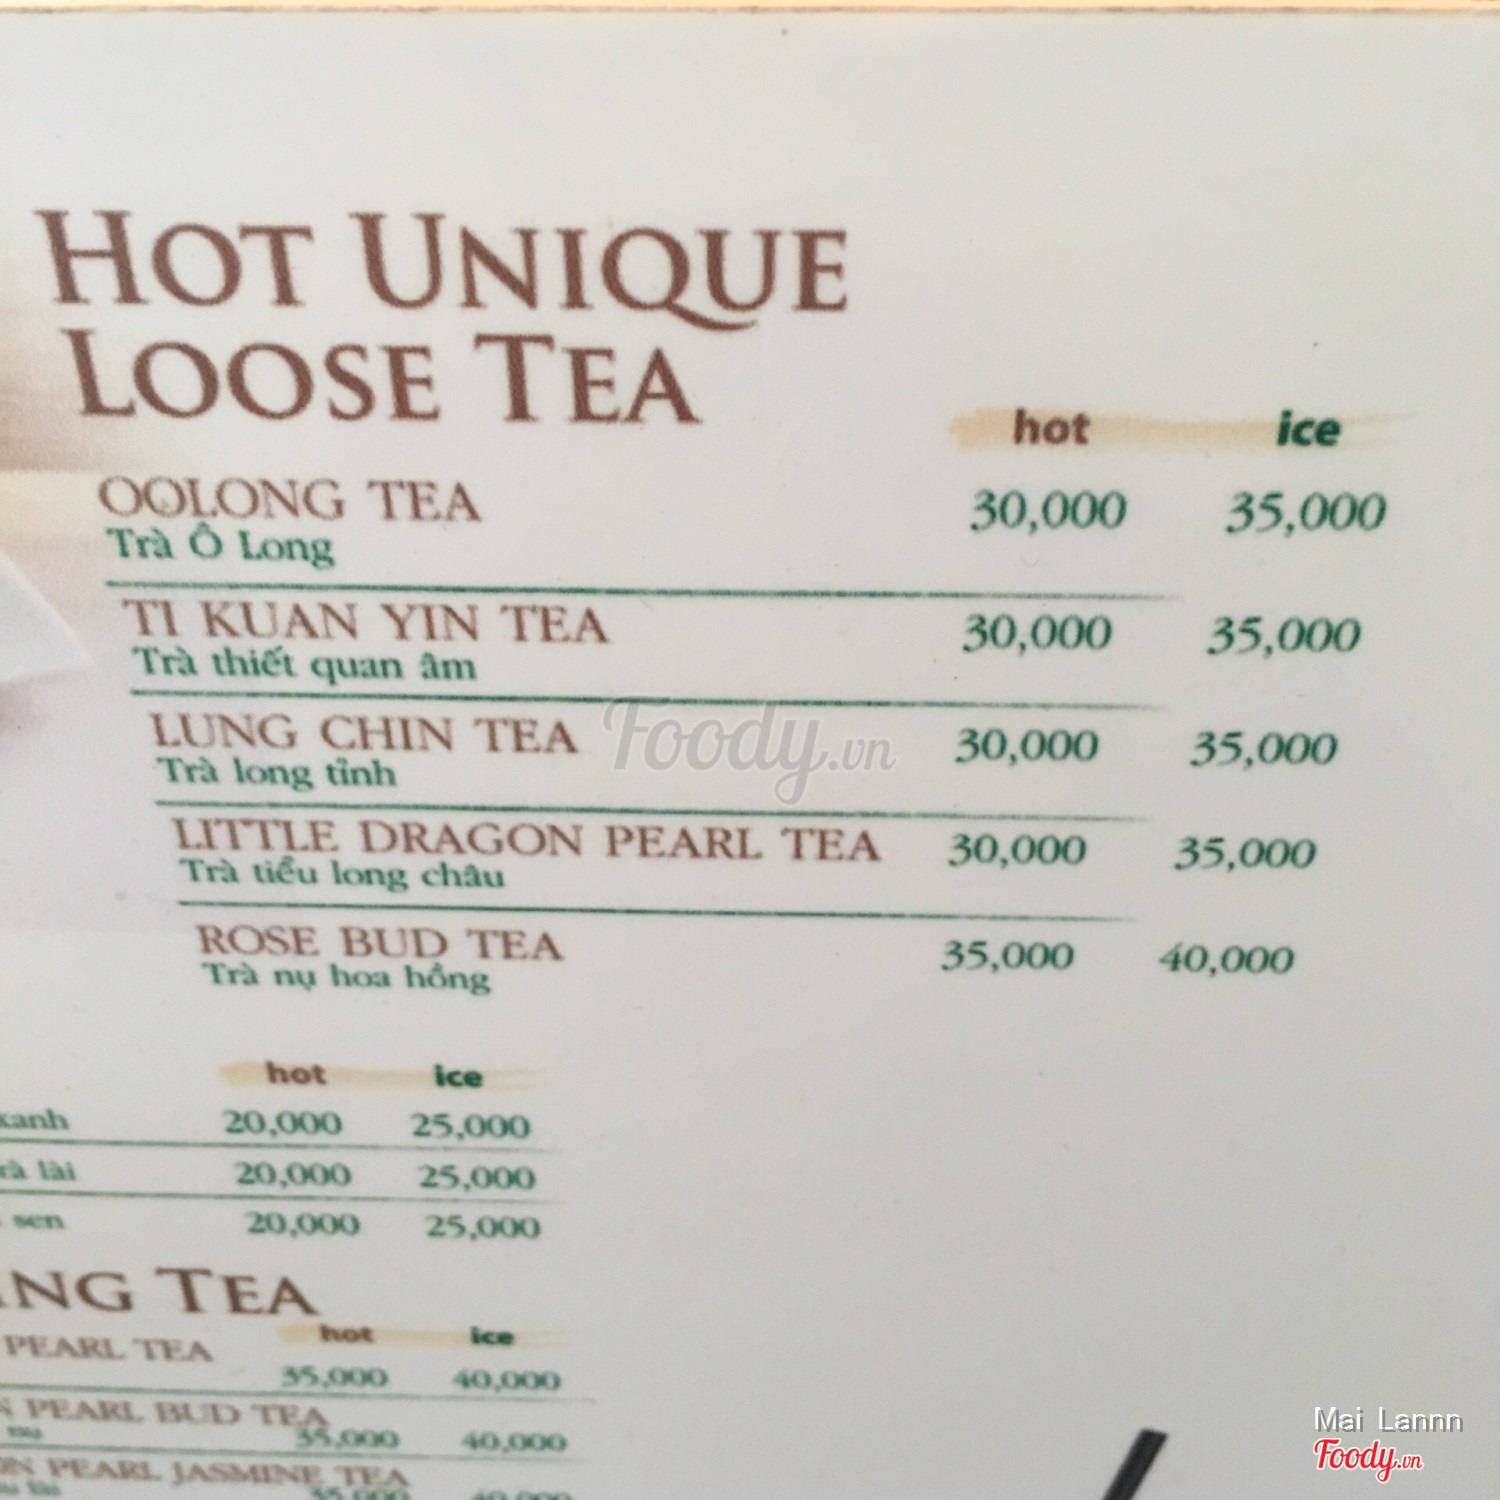 HOT UNIQUE
LOOSE TEA
hot ice
OOLONG TEA 30,000 35,000
Trà Ô Long
TI KUAN YIN TEA 30,000 35,000
Trà thiết quan âm
LUNG CHIN TEA 30,000 35,000
Trà long tỉnh
LITTLE DRAGON PEARL TEA 30,000 35,000
Trà tiểu long châu
ROSE BUD TEA 35,000 40,000
Trà nụ hoa hồng
Foody.vn
hot ice
xanh 20,000 25,000
lài 20,000 25,000
sen 20,000 25,000
TEA
hot ice
PEARL TEA
35,000 40,000
PEARL BUD TEA
35,000 40,000
PEARL JASMINE TEA
35,000 40,000
Mai Lannn
Foody.vn